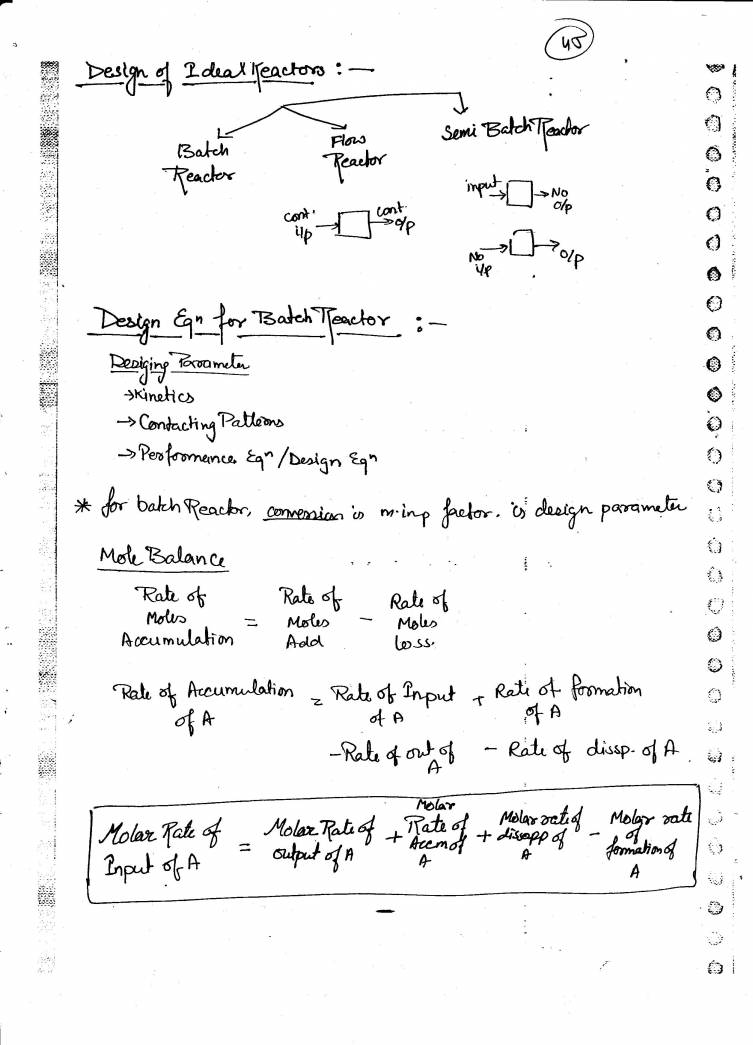 45
Design of Ideal Reactors :—
Batch Reactor
Flow Reactor
Semi Batch Reactor
cont. i/p
cont. o/p
input
No o/p
No i/p
o/p
Design Eqn for Batch Reactor :—
Desiging Parameter
→Kinetics
→Contacting Patterns
→Performance Eqn / Design Eqn
* for batch Reactor, conversion is m.imp factor. is design parameter
Mole Balance
Rate of Moles Accumulation = Rate of Moles Add - Rate of Moles loss.
Rate of Accumulation of A = Rate of Input of A + Rate of formation of A
-Rate of out of A - Rate of dissp. of A
Molar Rate of Input of A = Molar Rate of output of A + Molar Rate of Accm of A + Molar rate of disapp of A - Molar rate of formation of A